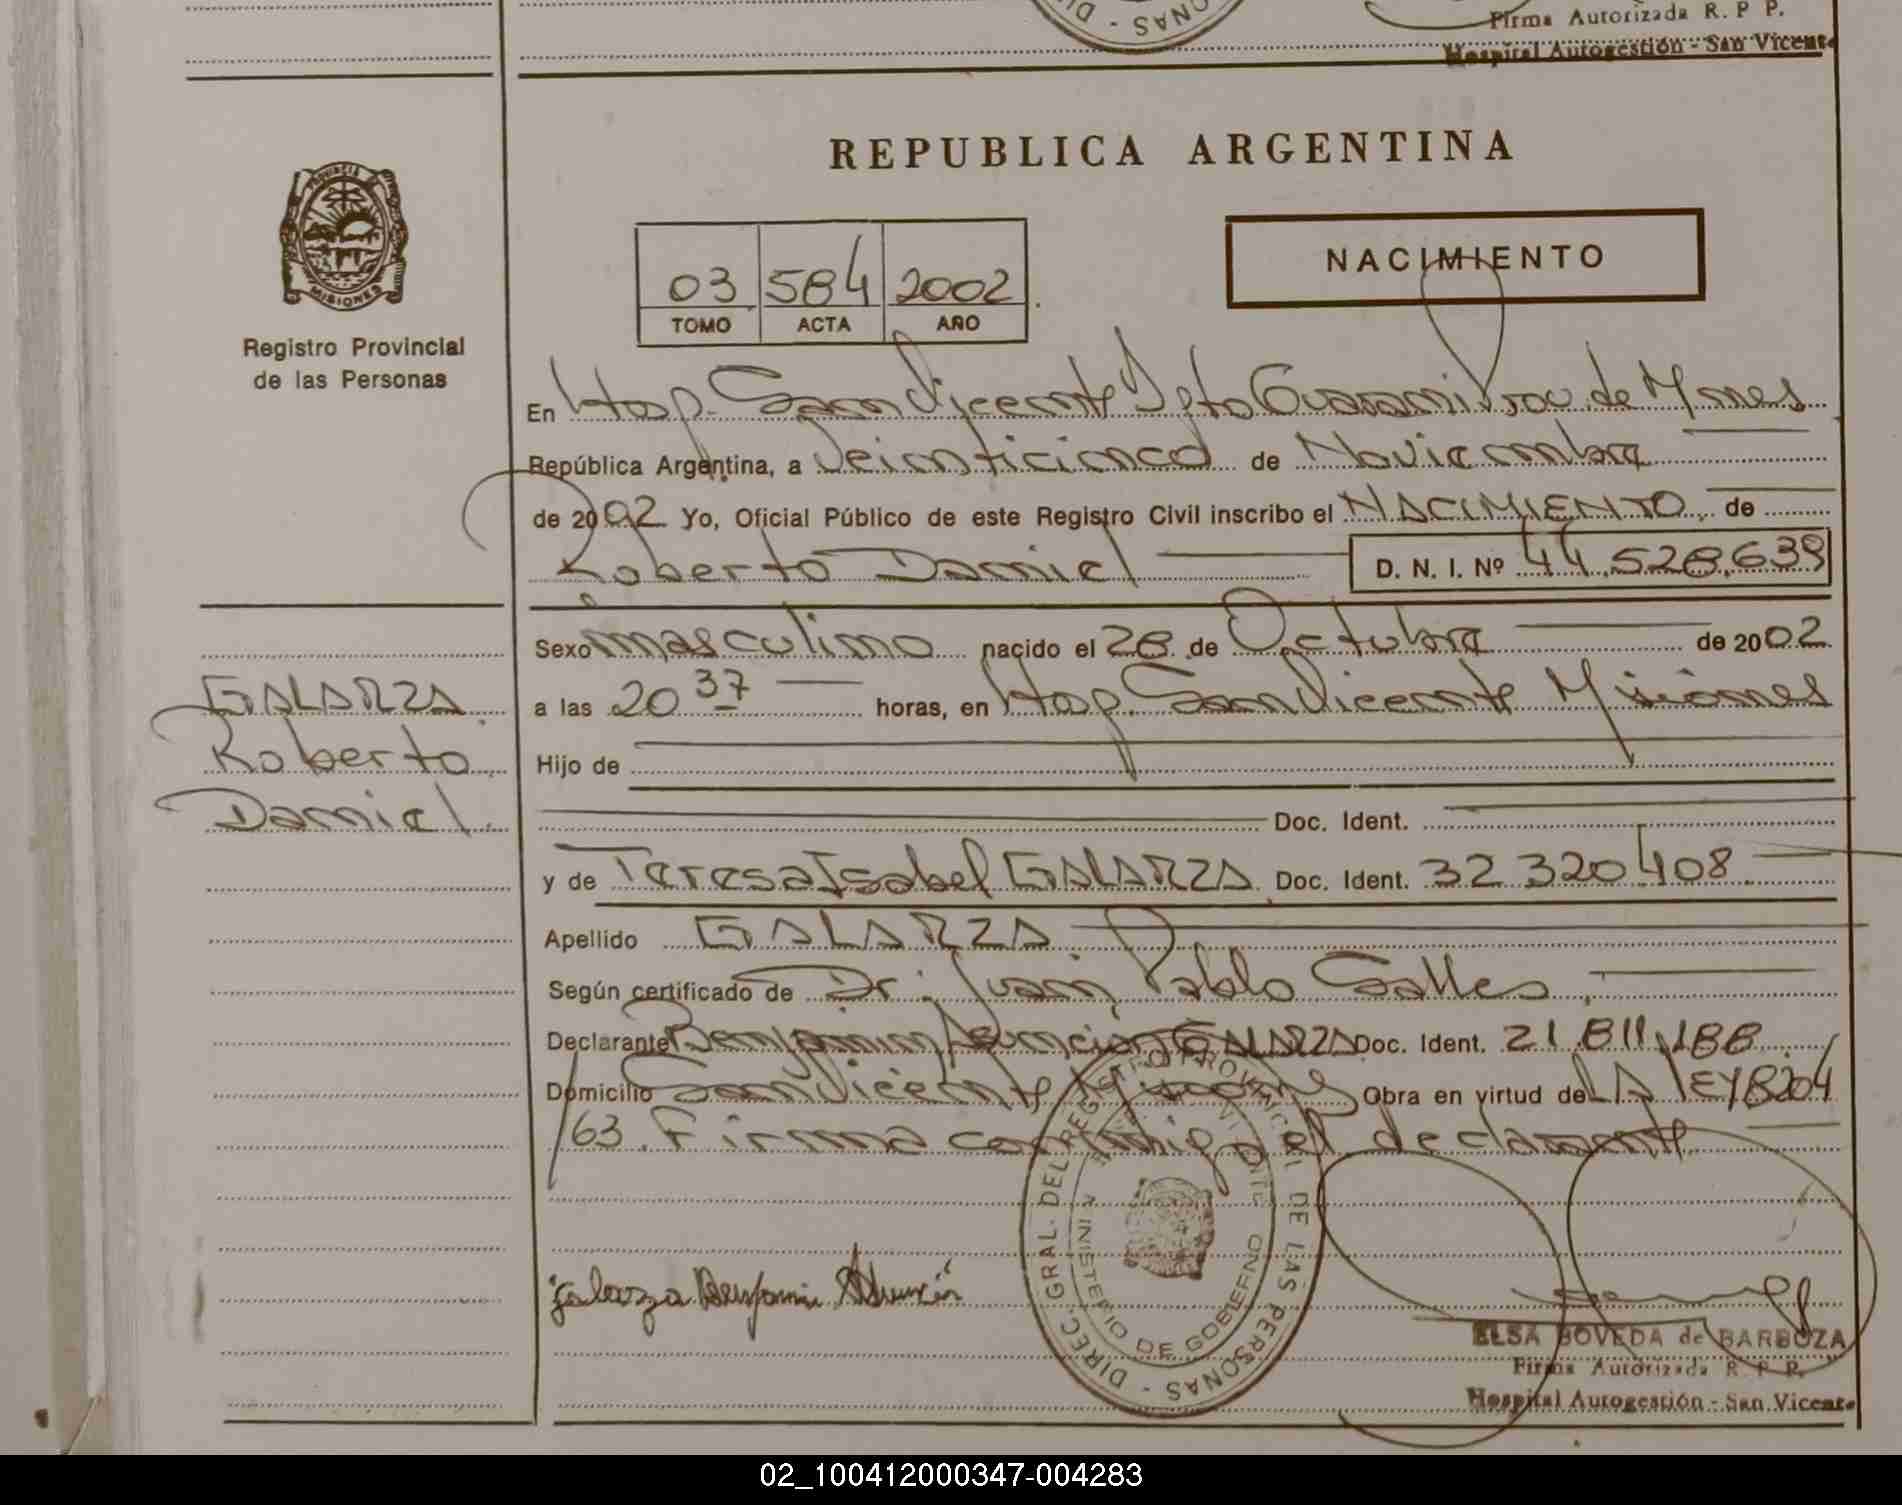 DIREC. - PERSONAS
Firma Autorizada R. P P.
Hospital Autogestión - San Vicente
REPUBLICA ARGENTINA
PROVINCIA DE MISIONES
Registro Provincial
de las Personas
03 584 2002
TOMO ACTA AÑO
NACIMIENTO
En Hosp. San Vicente Dpto Guarani Prov. de Mnes
República Argentina, a Veinticinco de Noviembre
de 2002 Yo, Oficial Público de este Registro Civil inscribo el NACIMIENTO, de
Roberto Daniel D. N. I. Nº 44.528.639
Sexo masculino nacido el 28 de Octubre de 2002
a las 20 37 horas, en Hosp. San Vicente Misiones
GALARZA
Roberto
Daniel
Hijo de
Doc. Ident.
y de Teresa Isabel GALARZA Doc. Ident. 32 320 408
Apellido GALARZA
Según certificado de Dr. Juan Pablo Salles
Declarante Benjamin Asunción GALARZA Doc. Ident. 21.811.188
Domicilio San Vicente Misiones Obra en virtud de LA LEY 8204
/63. Firma conmigo el declarante
DIREC. GRAL. DEL REGISTRO PROVINCIAL DE LAS PERSONAS -
MINISTERIO DE GOBIERNO
galarza Benjamin Asunción
ELSA BOVEDA de BARBOZA
Firma Autorizada R. P. P.
Hospital Autogestión - San Vicente
02_100412000347-004283